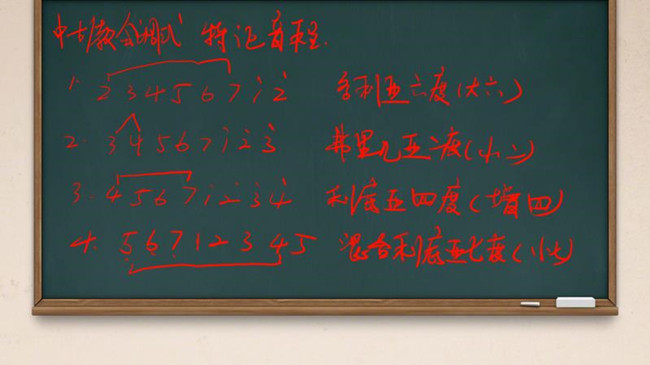 中古教会调式 特征音程.
1. 2 3 4 5 6 7 1̇ 2̇ 多利亚六度(大六)
2. 3 4 5 6 7 1̇ 2̇ 3̇ 弗里几亚二度(小二)
3. 4 5 6 7 1̇ 2̇ 3̇ 4̇ 利底亚四度(增四)
4. 5 6 7 1 2 3 4 5 混合利底亚七度(小七)